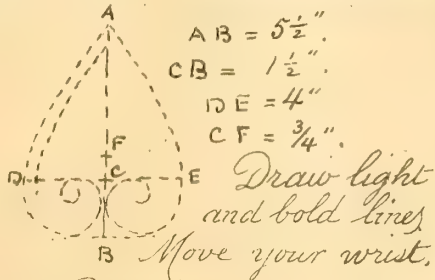 A
AB = 5½".
CB = 1½".
DE = 4"
CF = ¾".
F
D C E
Draw light
and bold lines,
B
Move your wrist.